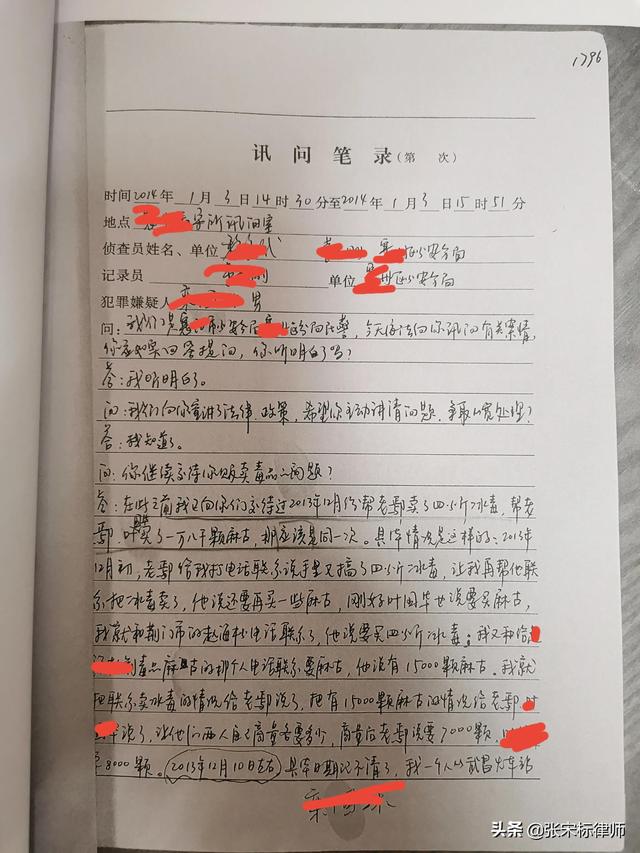 1796
讯问笔录(第 次)
时间2014年1月3日14时30分至2014年1月3日15时51分
地点 讯问室
侦查员姓名、单位 公安分局
记录员 单位 公安分局
犯罪嫌疑人 男
问:我们是 公安局 分局民警,今天依法向你讯问有关案情,
你应如实回答提问,你听明白了吗?
答:我听明白了。
问:我们向你宣讲了法律、政策,希望你主动讲清问题,争取从宽处理?
答:我知道了。
问:你继续交待你贩卖毒品的问题?
答:在此之前我又向你们交待过2013年12月份帮老鄢卖了四公斤冰毒,帮老
鄢 买了一万八千颗麻古,那应该是同一次。具体情况是这样的:2013年
12月初,老鄢给我打电话联系说手里又搞了四公斤冰毒,让我再帮他联
系把冰毒卖了,他说还要再买一些麻古,刚好叶国华也说要买麻古,
我就和荆门市的赵 电话联系了,他说要买四公斤冰毒;我又和
制毒品麻古的那个人电话联系要麻古,他说有15000颗麻古。我就
把联系卖冰毒的情况给老鄢说了,把有15000颗麻古的情况给老鄢、
说了,让他们两人自己商量各要多少,商量后老鄢说要7000颗,
8000颗。2013年12月10日左右,具体日期记不清了,我一个人从武昌火车站
头条 @张宋标律师